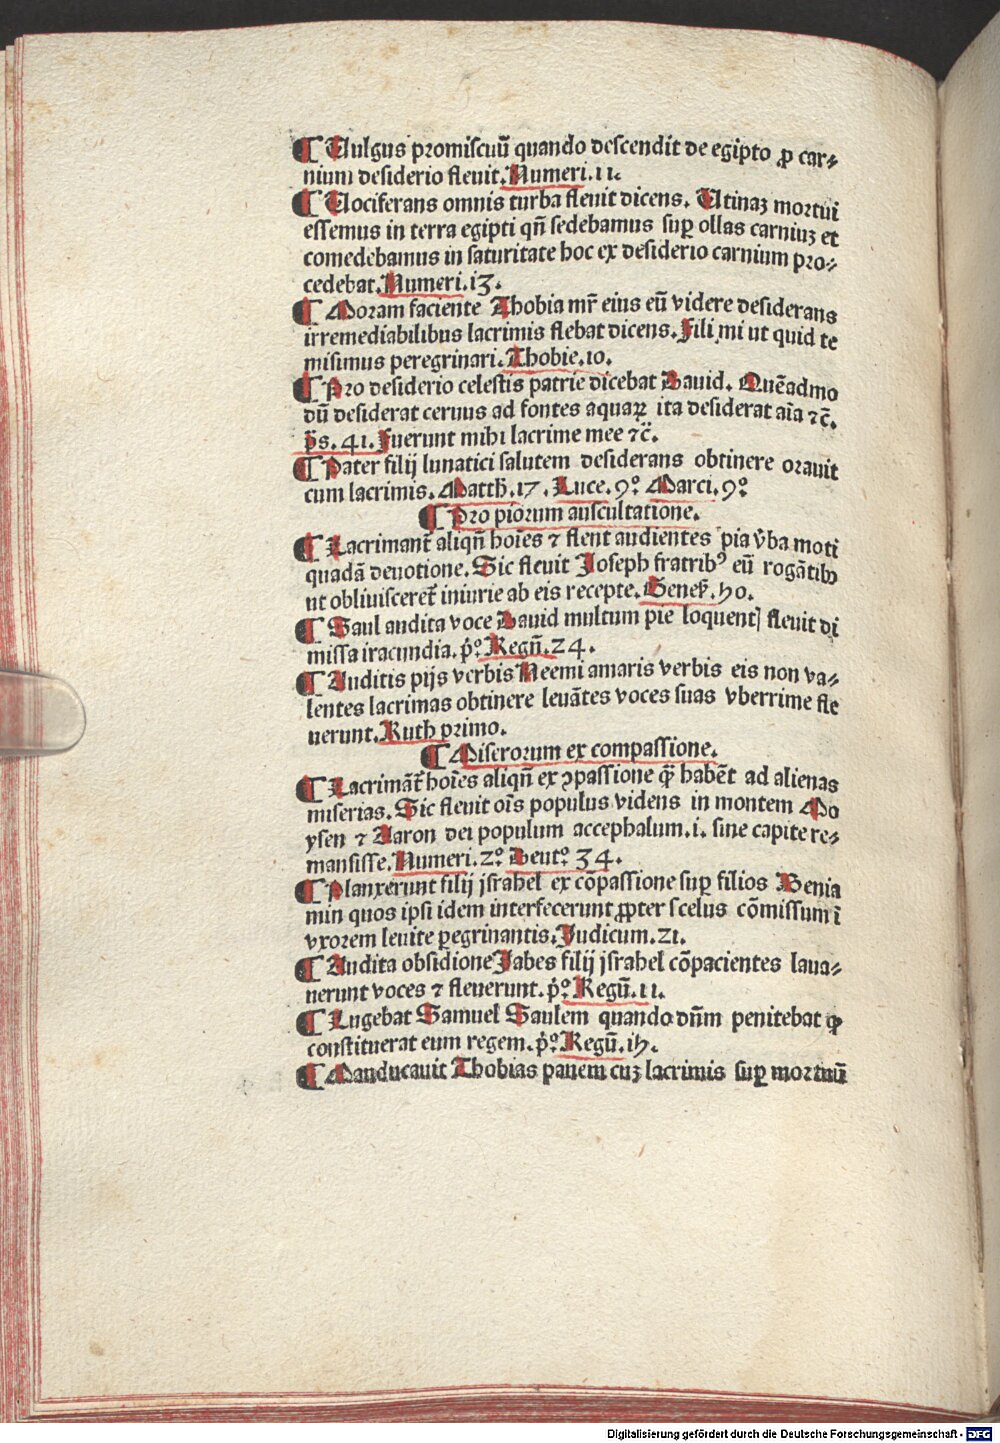 ¶ Uulgus promiscuū quando descendit de egipto ꝓ car⸗
nium desiderio fleuit. Numeri. 11.
¶ Uociferans omnis turba fleuit dicens. Utinaꝫ mortui
essemus in terra egipti qn̄ sedebamus suꝑ ollas carniuꝫ et
comedebamus in saturitate hoc ex desiderio carnium pro⸗
cedebat. Numeri. 13.
¶ Moram faciente Thobia mr̄ eius eū videre desiderans
irremediabilibus lacrimis flebat dicens. Fili mi ut quid te
misimus peregrinari. Thobie. 10.
¶ Pro desiderio celestis patrie dicebat Dauid. Quēadmo
dū desiderat ceruus ad fontes aquaꝝ ita desiderat aīa ⁊c̄.
p̄s. 41. Fuerunt mihi lacrime mee ⁊c̄.
¶ Pater filij lunatici salutem desiderans obtinere orauit
cum lacrimis. Matth. 17. Luce. 9° Marci. 9°
¶ Pro piorum auscultatione.
¶ Lacrimant̄ aliqn̄ hoīes ⁊ flent audientes pia v̄ba moti
quadā deuotione. Sic fleuit Joseph fratribꝰ eū rogātibꝰ
ut obliuisceret̄ iniurie ab eis recepte. Genes̄. 50.
¶ Saul audita voce Dauid multum pie loquentꝭ fleuit di
missa iracundia. p̄° Regū. 24.
¶ Auditis pijs verbis Neemi amaris verbis eis non va⸗
lentes lacrimas obtinere leuātes voces suas vberrime fle
uerunt. Ruth primo.
¶ Miserorum ex compassione.
¶ Lacrimāt̄ hoīes aliqn̄ ex ꝯpassione quā habēt ad alienas
miserias. Sic fleuit oīs populus videns in montem Mo
ysen ⁊ Aaron dei populum accephalum .i. sine capite re⸗
mansisse. Numeri. 2° Deut° 34.
¶ Planxerunt filij jsrahel ex cōpassione suꝑ filios Benia
min quos ipsi idem interfecerunt ꝓpter scelus cōmissum ī
vxorem leuite ꝑegrinantis. Judicum. 21.
¶ Audita obsidione Jabes filij jsrahel cōpacientes laua⸗
uerunt voces ⁊ fleuerunt. p̄° Regū. 11.
¶ Lugebat Samuel Saulem quando dn̄m penitebat ꝙ
constituerat eum regem. p̄° Regū. 15.
¶ Manducauit Thobias panem cuꝫ lacrimis suꝑ mortuū
Digitalisierung gefördert durch die Deutsche Forschungsgemeinschaft - DFG